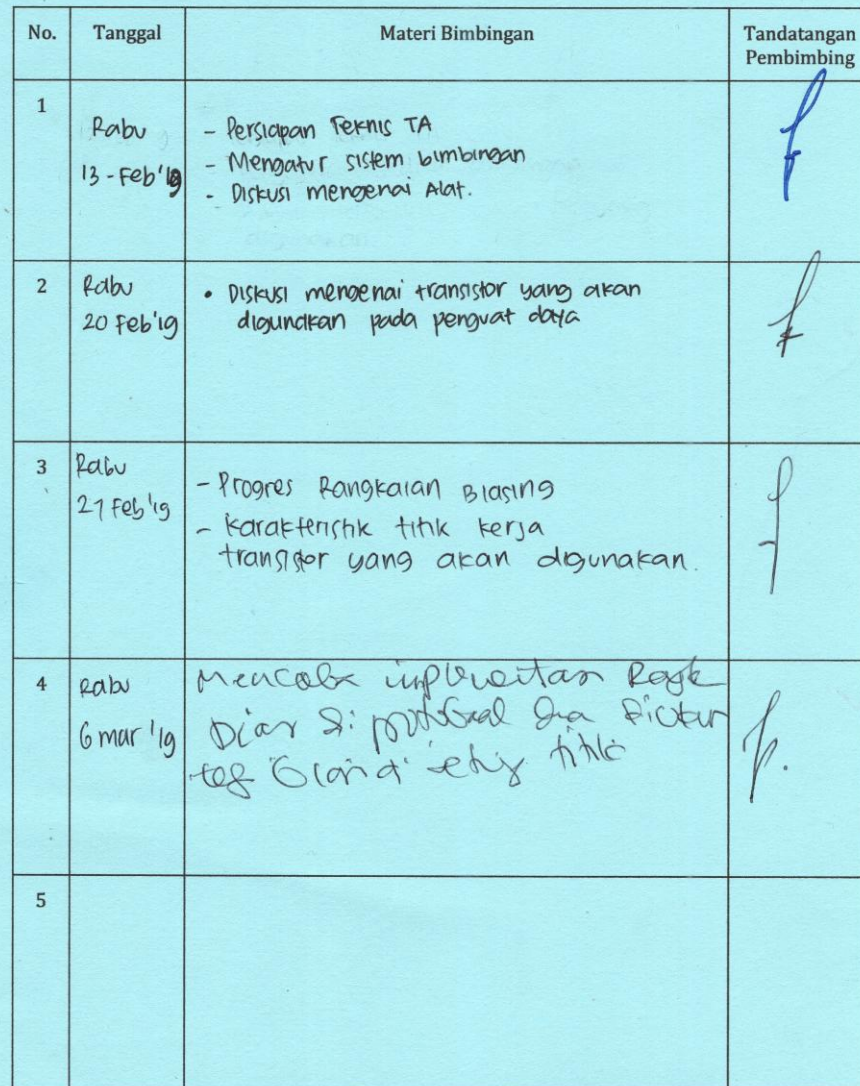 No.
Tanggal
Materi Bimbingan
Tandatangan
Pembimbing
1
Rabu
13 - Feb'19
- Persiapan Teknis TA
- Mengatur sistem bimbingan
- Diskusi mengenai Alat.
2
Rabu
20 Feb'19
• Diskusi mengenai transistor yang akan
digunakan pada penguat daya
3
Rabu
27 Feb'19
- Progres Rangkaian Biasing
- Karakteristik titik kerja
transistor yang akan digunakan.
4
Rabu
6 mar '19
Mencoba
di
titik
5